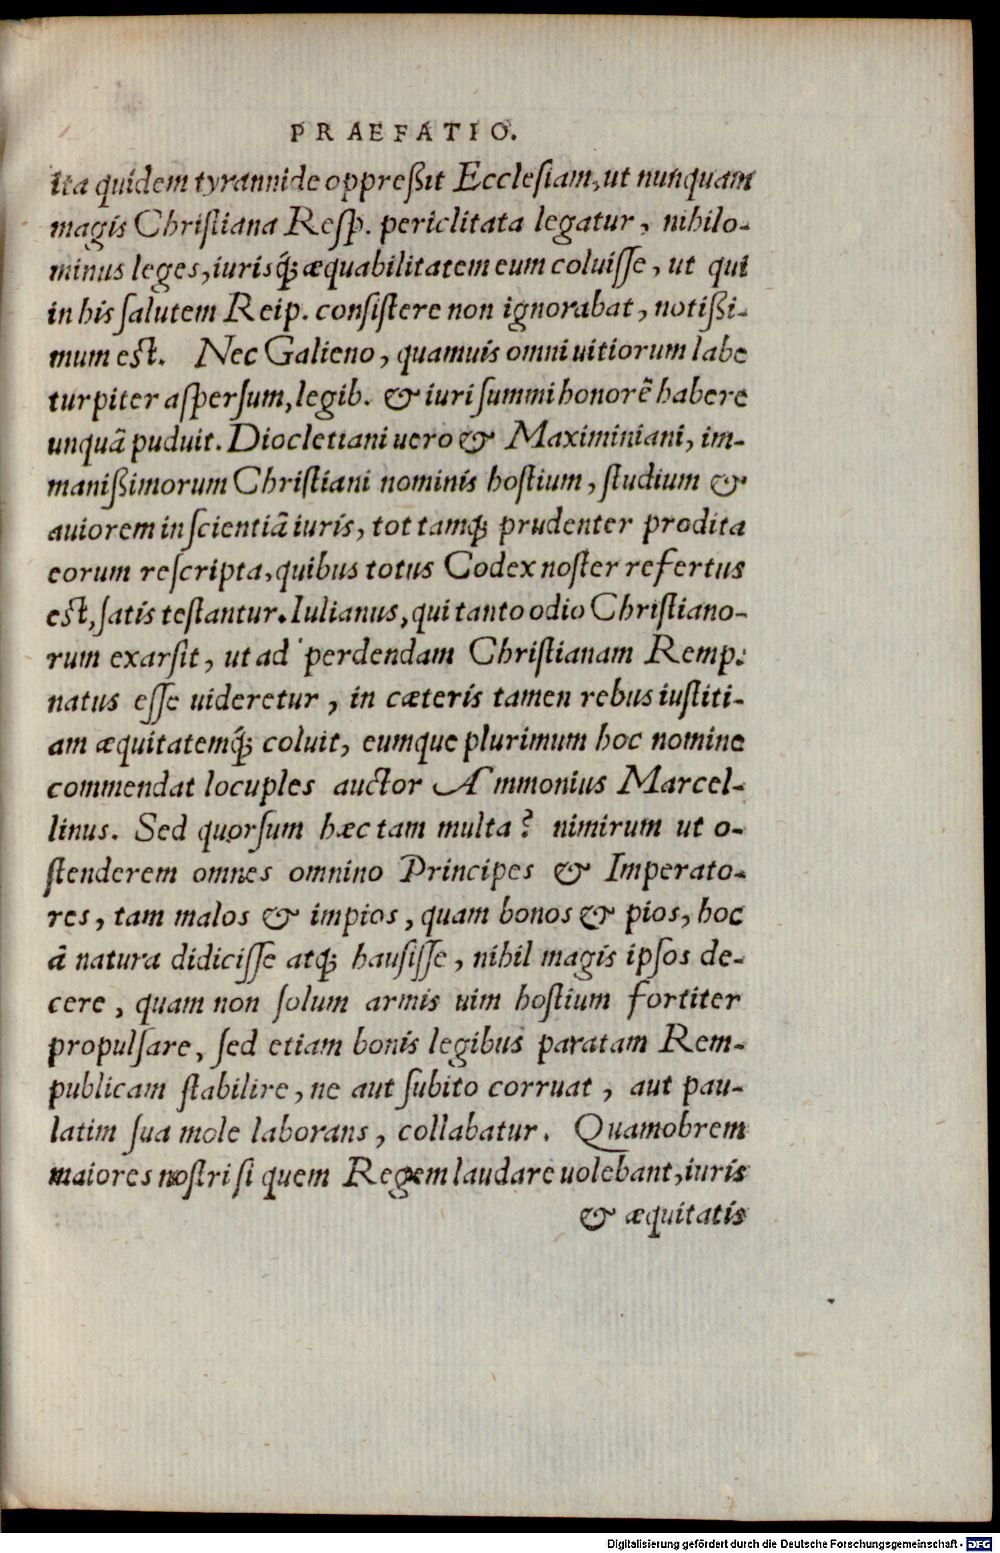 PRAEFATIO.
ita quidem tyrannide oppreßit Ecclesiam, ut nunquam
magis Christiana Resp. periclitata legatur, nihilo-
minus leges, iurisq́; æquabilitatem eum coluisse, ut qui
in his salutem Reip. consistere non ignorabat, notißi-
mum est. Nec Galieno, quamuis omni uitiorum labe
turpiter aspersum, legib. & iuri summi honorẽ habere
unquã puduit. Diocletiani uero & Maximiniani, im-
manißimorum Christiani nominis hostium, studium &
auiorem in scientiã iuris, tot tamq; prudenter prodita
eorum rescripta, quibus totus Codex noster refertus
est, satis testantur. Iulianus, qui tanto odio Christiano-
rum exarsit, ut ad perdendam Christianam Remp.
natus esse uideretur, in cæteris tamen rebus iustiti-
am æquitatemq́; coluit, eumque plurimum hoc nomine
commendat locuples auctor Ammonius Marcel-
linus. Sed quorsum hæc tam multa? nimirum ut o-
stenderem omnes omnino Principes & Imperato-
res, tam malos & impios, quam bonos & pios, hoc
â natura didicisse atq; hausisse, nihil magis ipsos de-
cere, quam non solum armis uim hostium fortiter
propulsare, sed etiam bonis legibus paratam Rem-
publicam stabilire, ne aut subito corruat, aut pau-
latim sua mole laborans, collabatur. Quamobrem
maiores nostri si quem Regem laudare uolebant, iuris
& æquitatis
Digitalisierung gefördert durch die Deutsche Forschungsgemeinschaft - DFG